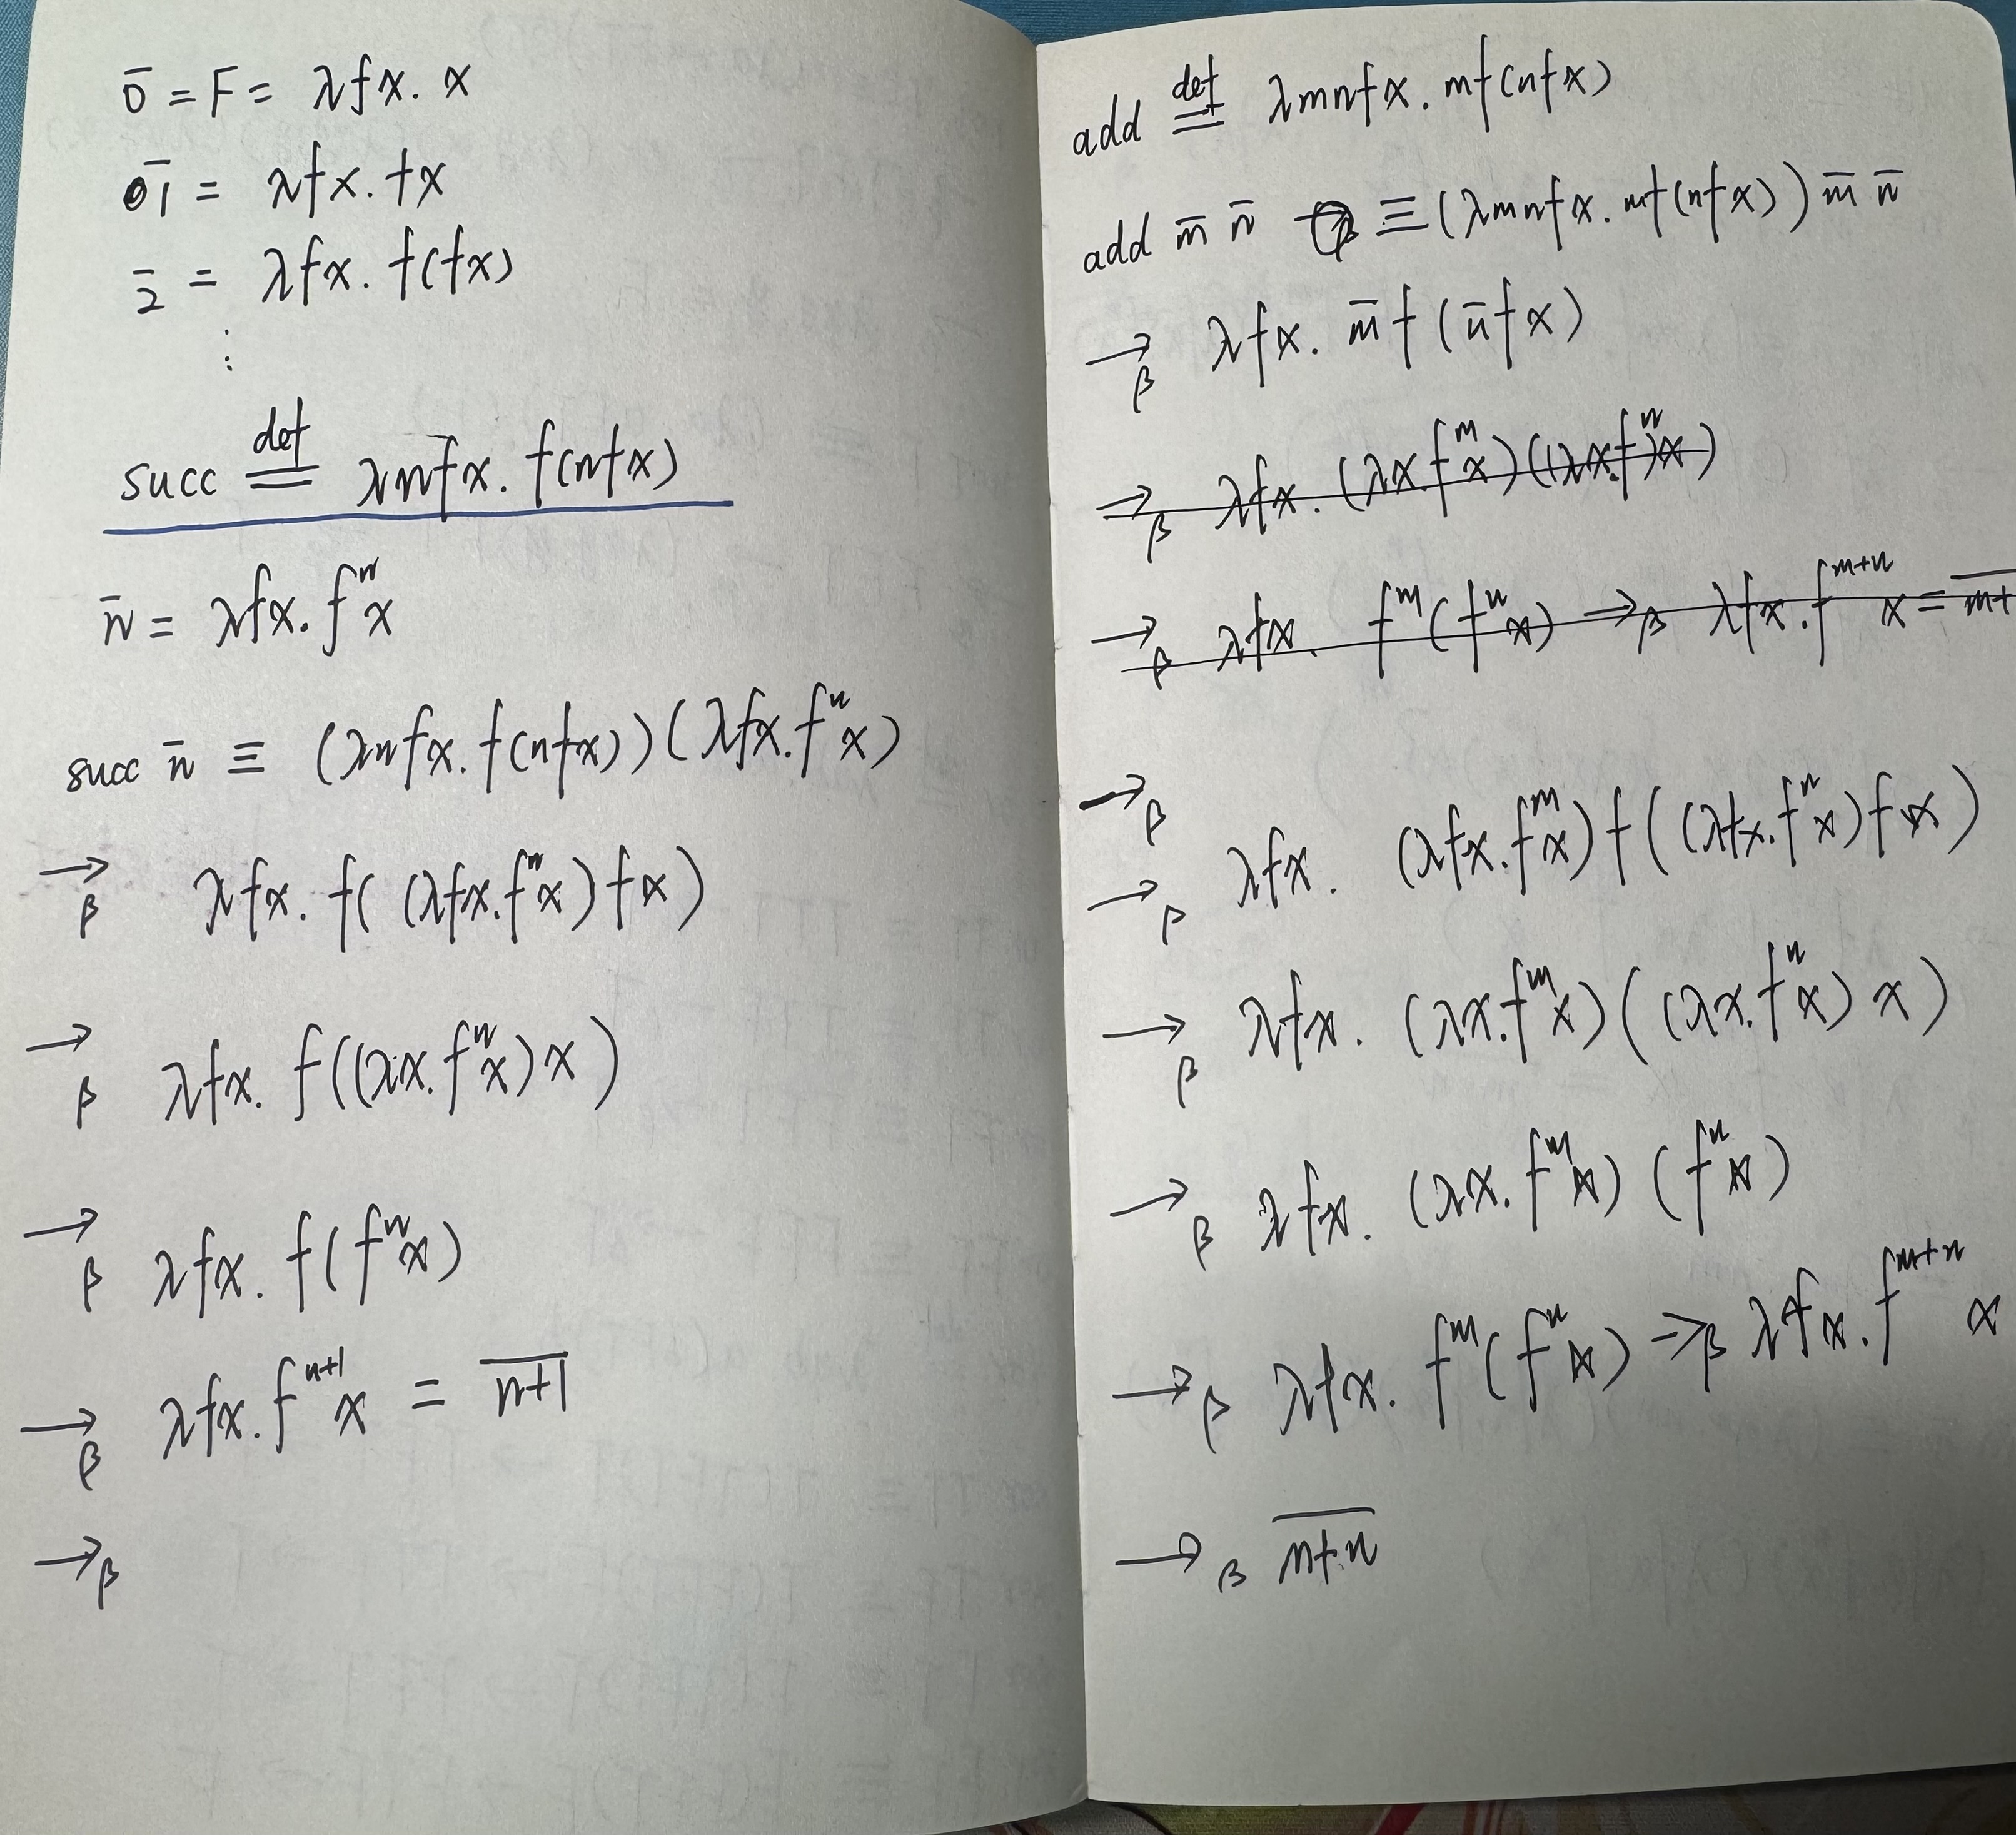 0̄ = F = λfx. x
1̄ = λfx. fx
2̄ = λfx. f(fx)
⋮
succ ≝ λnfx. f(nfx)
n̄ = λfx. fⁿx
succ n̄ ≡ (λnfx. f(nfx))(λfx. fⁿx)
→β λfx. f((λfx. fⁿx)fx)
→β λfx. f((λx. fⁿx)x)
→β λfx. f(fⁿx)
→β λfx. fⁿ⁺¹x = n+1̅
→β
add ≝ λmnfx. mf(nfx)
add m̄ n̄ ≡ (λmnfx. mf(nfx)) m̄ n̄
→β λfx. m̄f(n̄fx)
→β λfx. (λx. fᵐx)((λx. fⁿ)x)
→β λfx. fᵐ(fⁿx) →β λfx. fᵐ⁺ⁿ x = m+
→β
→β λfx. (λfx. fᵐx)f((λfx. fⁿx)fx)
→β λfx. (λx. fᵐx)((λx. fⁿx)x)
→β λfx. (λx. fᵐx)(fⁿx)
→β λfx. fᵐ(fⁿx) →β λfx. fᵐ⁺ⁿ x
→β m̅+̅n̅